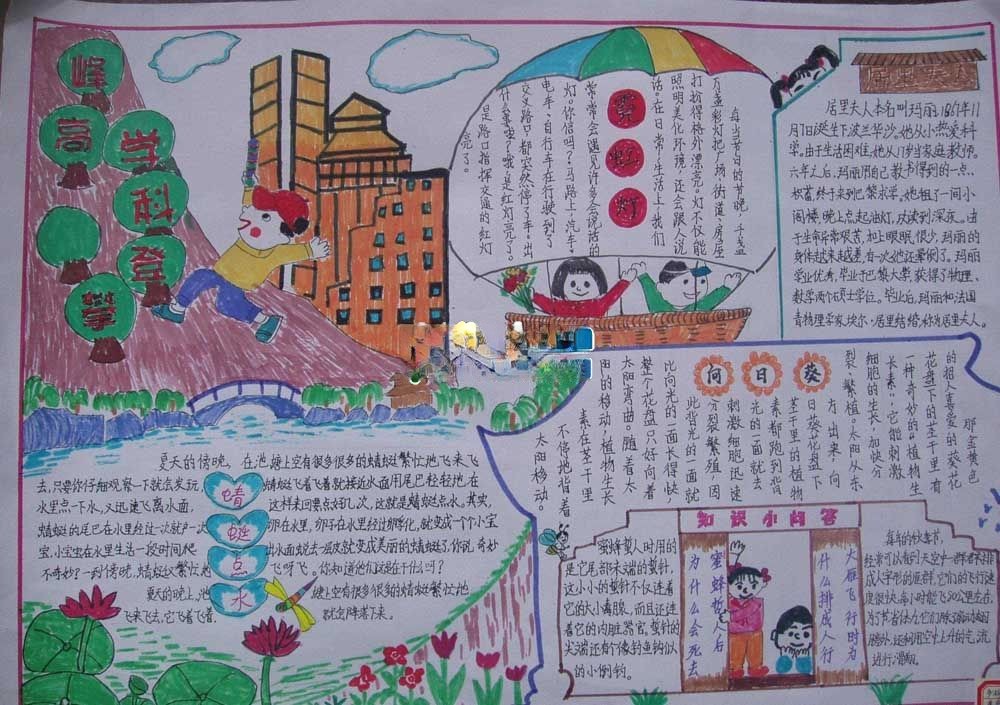 攀
登
科
学
高
峰
霓
虹
灯
每当节日的节晚，千盏
万盏彩灯把广场、街道、房屋
打扮得格外漂亮。灯不仅能
照明美化环境，还会跟人说
话。在日常生活上，我们
常常会遇见许多会说话的
灯。你信吗？马路上，汽车、
电车、自行车在行驶到
交叉路口都突然停了车。出
什么事啦？哦，是红灯亮了。
是路口指挥交通的红灯
亮了。
居里夫人
居里夫人本名叫玛丽，1867年11
月7日诞生下波兰华沙。她从小热爱科
学。由于生活困难，她从17岁当家庭教师。
六年之后，玛丽用自己教书得到的一点
积蓄，终于来到巴黎求学。她租了一间小
阁楼，晚上点起油灯，攻读到深夜。由
于生命异常艰苦，加上睡眠很少，玛丽的
身体越来越差，有一次她还晕倒了。玛丽
学业优秀，毕业于巴黎大学，获得了物理、
数学两个硕士学位。毕业后，玛丽和法国
青物理学家埃尔·居里结婚，称为居里夫人。
向日葵
那金黄色
的招人喜爱的葵花
花盘下的茎干里有
一种奇妙的“植物生
长素”，它能刺激
细胞的生长，加快分
裂、繁殖。太阳从东
方出来，向
日葵花盘下
茎干里的植物
素都跑到背
光的一面就去
刺激细胞迅速
分裂繁殖，因
此背光的一面就
比向光的一面长得快
整个花盘只好向着
太阳弯曲。随着太
阳的移动，植物生长
素在茎干里
不停地背着
太阳移动。
蜻
蜓
点
水
夏天的傍晚，在池塘上空有很多很多的蜻蜓繁忙地飞来飞
去，只要你仔细观察一下就会发现，蜻蜓飞着飞着就接近水面用尾巴轻轻地在
水里点一下水，又迅速飞离水面，这样来回要点好几次，这就是蜻蜓点水。其实，
蜻蜓的尾巴在水里经过一次就产一次卵在水里，卵子在水里经过孵化，就变成一个个小宝
宝，小宝虫在水里生活一段时间爬出水面蜕去一层皮就变成美丽的蜻蜓了，你说奇妙
不奇妙？一到傍晚，蜻蜓欢繁忙地飞呀飞。你知道他们这是在干什么吗？
夏天的晚上，池塘上空有很多很多的蜻蜓繁忙地
飞来飞去，它飞着飞着，就忽降落下来。
知识小问答
蜜蜂蜇人时用的
是它尾部末端的蜇针，
这小小的蜇针不仅连着
它的大小毒腺，而且还连
着它的内脏器官，蜇针的
尖端还有个像钓鱼钩似
的小倒钩。
蜜蜂蜇人后
为什么会死去
大雁飞行时为
什么排成人行
每年的秋冬季，
经常可以看到天空中一群群大雁排
成人字形的雁群，它们的飞行速
度很快，每小时能飞80公里左右，